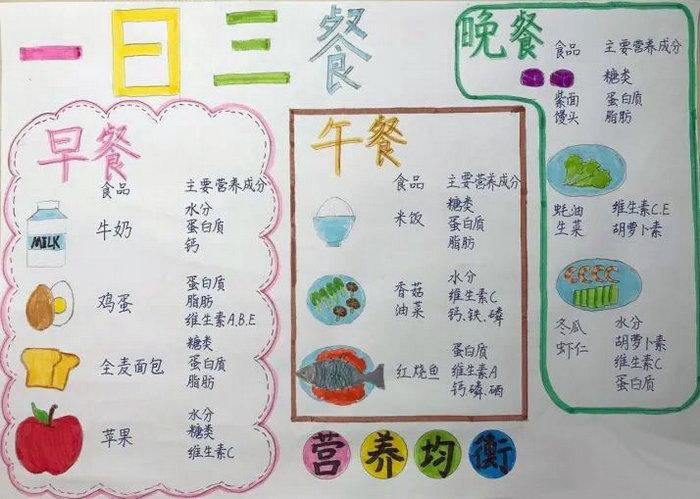 一日三餐
早餐
食品 主要营养成分
MILK
牛奶
水分
蛋白质
钙
鸡蛋
蛋白质
脂肪
维生素A.B.E
全麦面包
糖类
蛋白质
脂肪
苹果
水分
糖类
维生素C
午餐
食品 主要营养成分
米饭
糖类
蛋白质
脂肪
香菇
油菜
水分
维生素C
钙.铁.磷
红烧鱼
蛋白质
维生素A
钙.磷.硒
晚餐
食品 主要营养成分
紫面
馒头
糖类
蛋白质
脂肪
蚝油
生菜
维生素C.E
胡萝卜素
冬瓜
虾仁
水分
胡萝卜素
维生素C
蛋白质
营养均衡